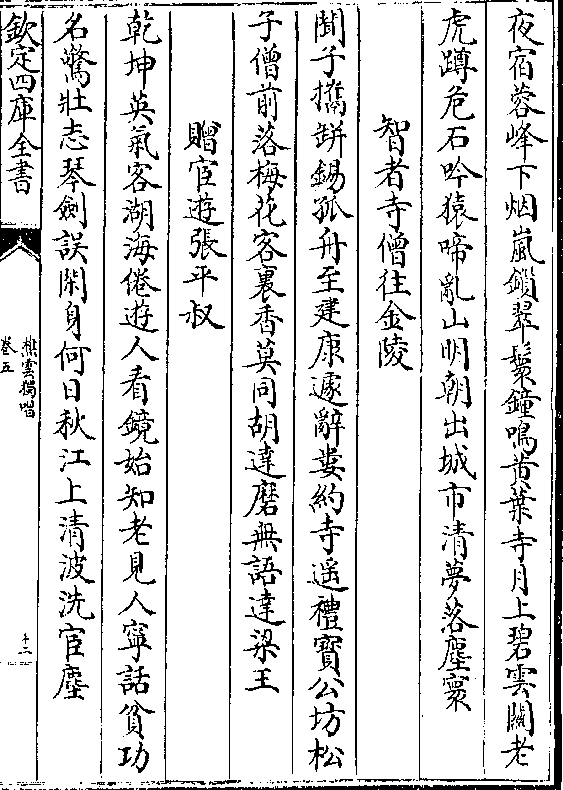 夜宿蓉峰下烟嵐鎖翠鬟鐘鳴黄葉寺月上碧雲關老
虎蹲危石吟猿啼亂山明朝出城市清夢落塵寰
智者寺僧往金陵
聞子攜缾錫孤舟至建康遽辭婁約寺遥禮寳公坊松
子僧前落梅花客裏香莫同胡達磨無語達梁王
贈宦遊張平叔
乾坤英氣客湖海倦遊人看鏡始知老見人寧話貧功
名驚壯志琴劍誤閑身何日秋江上清波洗宦塵
欽定四庫全書
樵雲獨唱
卷五
十二